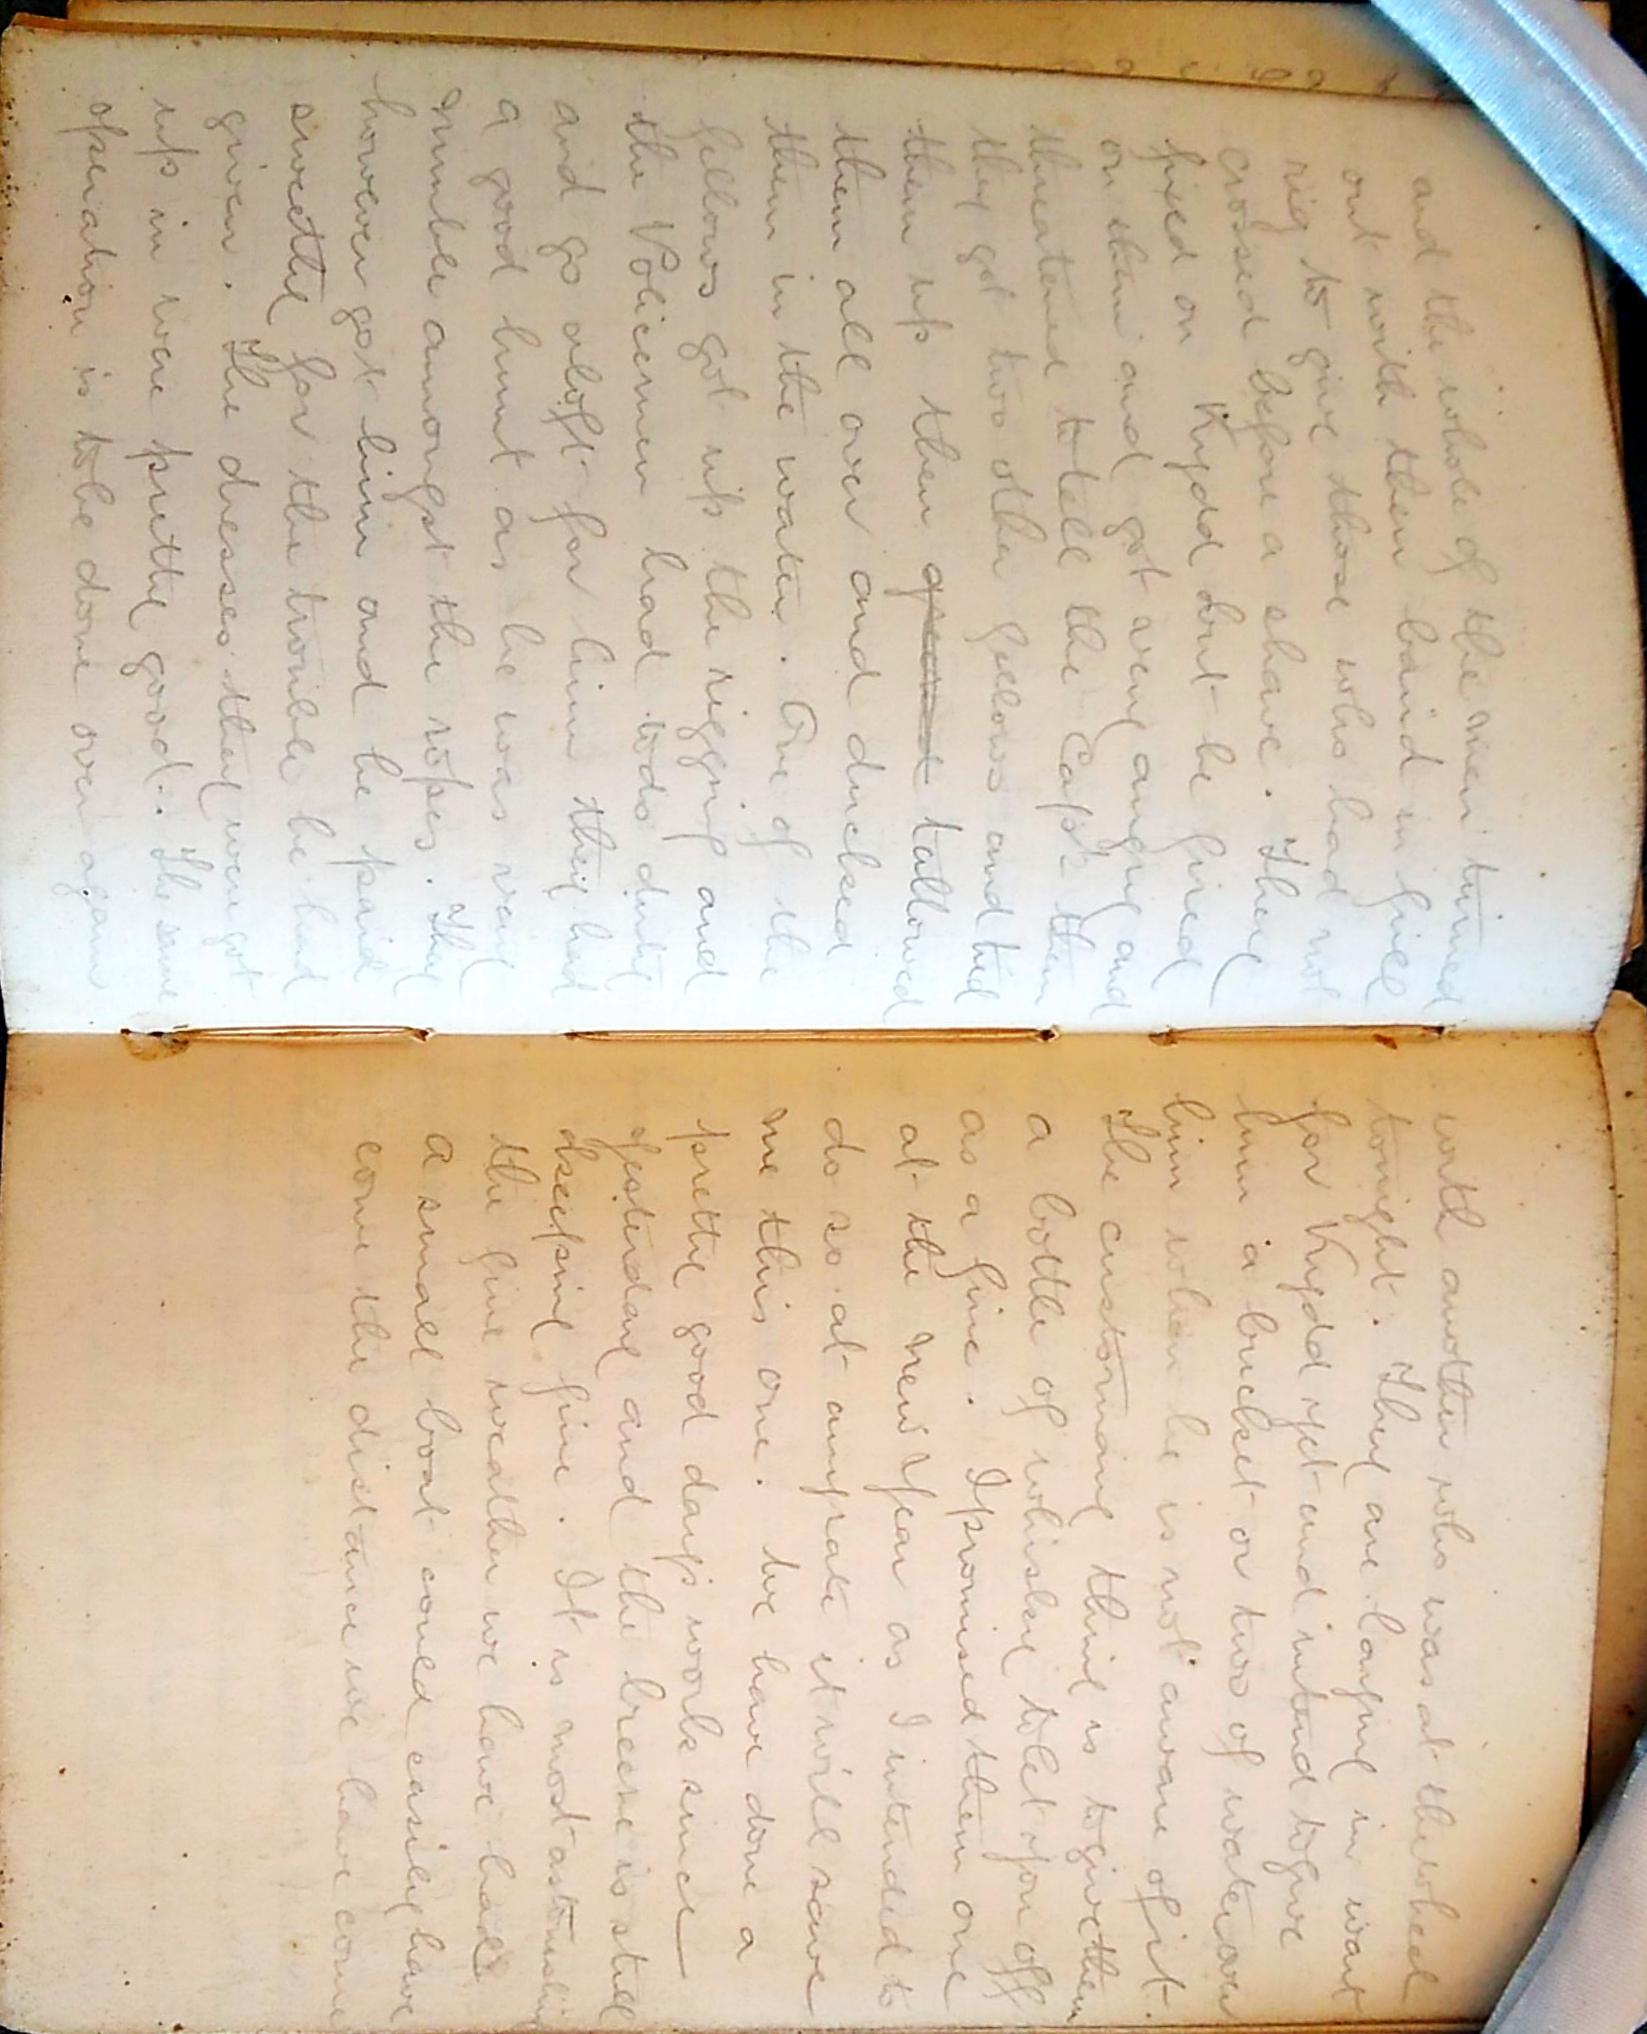 and the whole of the men turned
out with them band in full
rig to give those who had not
crossed before a shave. They
fixed on Kydd but he fired
on them and got very angry and
threatened to tell the Capt then
they got two other fellows and tied
them up then greased tallowed
them all over and ducked
them in the water. One of the
fellows got up the rigging and
the Policemen had to do duty
and go aloft for him they had
a good hunt as he was very
nimble amongst the ropes. They
however got him and he paid
sweetly for the trouble he had
given. The dresses they were got
up in were pretty good. The same
operation is to be done over again
with another who was at the wheel
tonight. They are laying in wait
for Kydd yet and intend to give
him a bucket or two of water over
him when he is not aware of it.
The customary thing is to give them
a bottle of whiskey to let you off
as a fine. I promised them one
at the New Year as I intended to
do so at anyrate it will save
me this one. We have done a
pretty good days work since
yesterday and the breeze is still
keeping fine. It is most astonishing
the fine weather we have had
A small boat could easily have
come the distance we have come